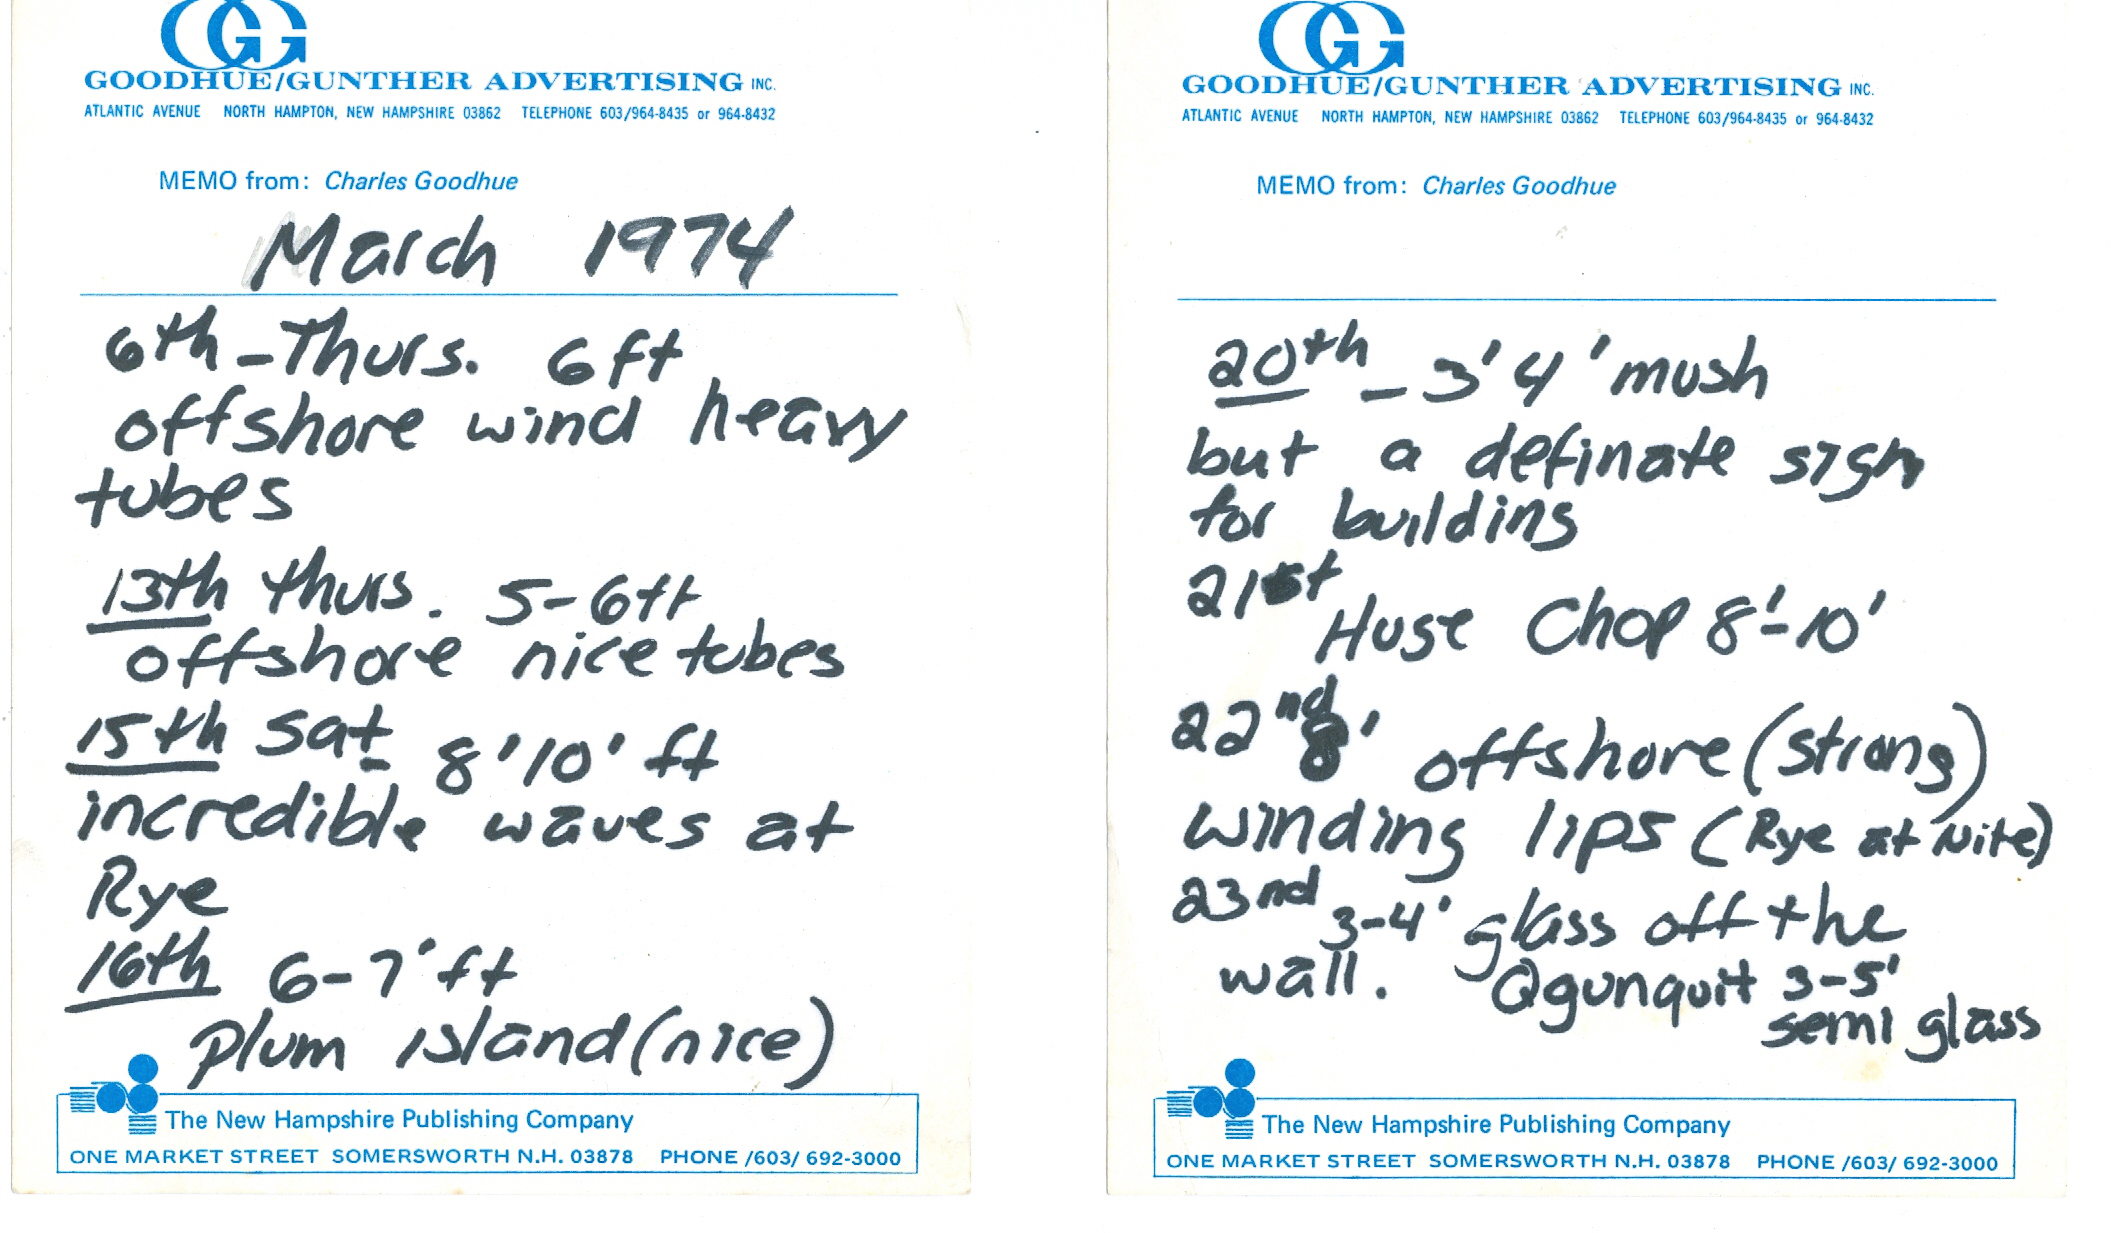 GG
GOODHUE/GUNTHER ADVERTISING INC.
ATLANTIC AVENUE NORTH HAMPTON, NEW HAMPSHIRE 03862 TELEPHONE 603/964-8435 or 964-8432
MEMO from: Charles Goodhue
March 1974
6th - Thurs. 6ft
offshore wind heavy
tubes
13th thurs. 5-6ft
offshore nice tubes
15th Sat - 8'10' ft
incredible waves at
Rye
16th 6-7' ft
plum island (nice)
The New Hampshire Publishing Company
ONE MARKET STREET SOMERSWORTH N.H. 03878 PHONE /603/ 692-3000
GG
GOODHUE/GUNTHER ADVERTISING INC.
ATLANTIC AVENUE NORTH HAMPTON, NEW HAMPSHIRE 03862 TELEPHONE 603/964-8435 or 964-8432
MEMO from: Charles Goodhue
20th - 3'4' mush
but a definate sign
for building
21st
Huge Chop 8'-10'
22nd 8' offshore (strong)
winding lips (Rye at Nite)
23nd 3-4' glass off the
wall. Ogunquit 3-5'
semi glass
The New Hampshire Publishing Company
ONE MARKET STREET SOMERSWORTH N.H. 03878 PHONE /603/ 692-3000